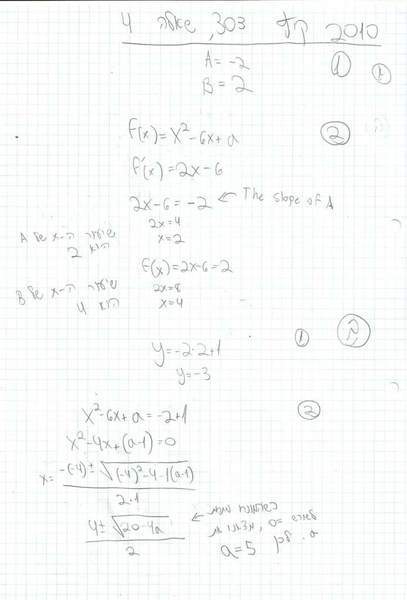 קיץ 2010 303, שאלה 4
① א
A = -2
B = 2
②
f(x) = x² - 6x + a
f'(x) = 2x - 6
2x - 6 = -2 ← The slope of A
2x = 4
x = 2
שיעור ה-x של A
הוא 2
f(x) = 2x - 6 = 2
2x = 8
x = 4
שיעור ה-x של B
הוא 4
ב
①
y = -2·2+1
y = -3
②
x² - 6x + a = -2+1
x² - 4x + (a-1) = 0
x = -(-4) ± √(-4)² - 4·1(a-1)
2·1
4 ± √20-4a ←
2
0,
a = 5